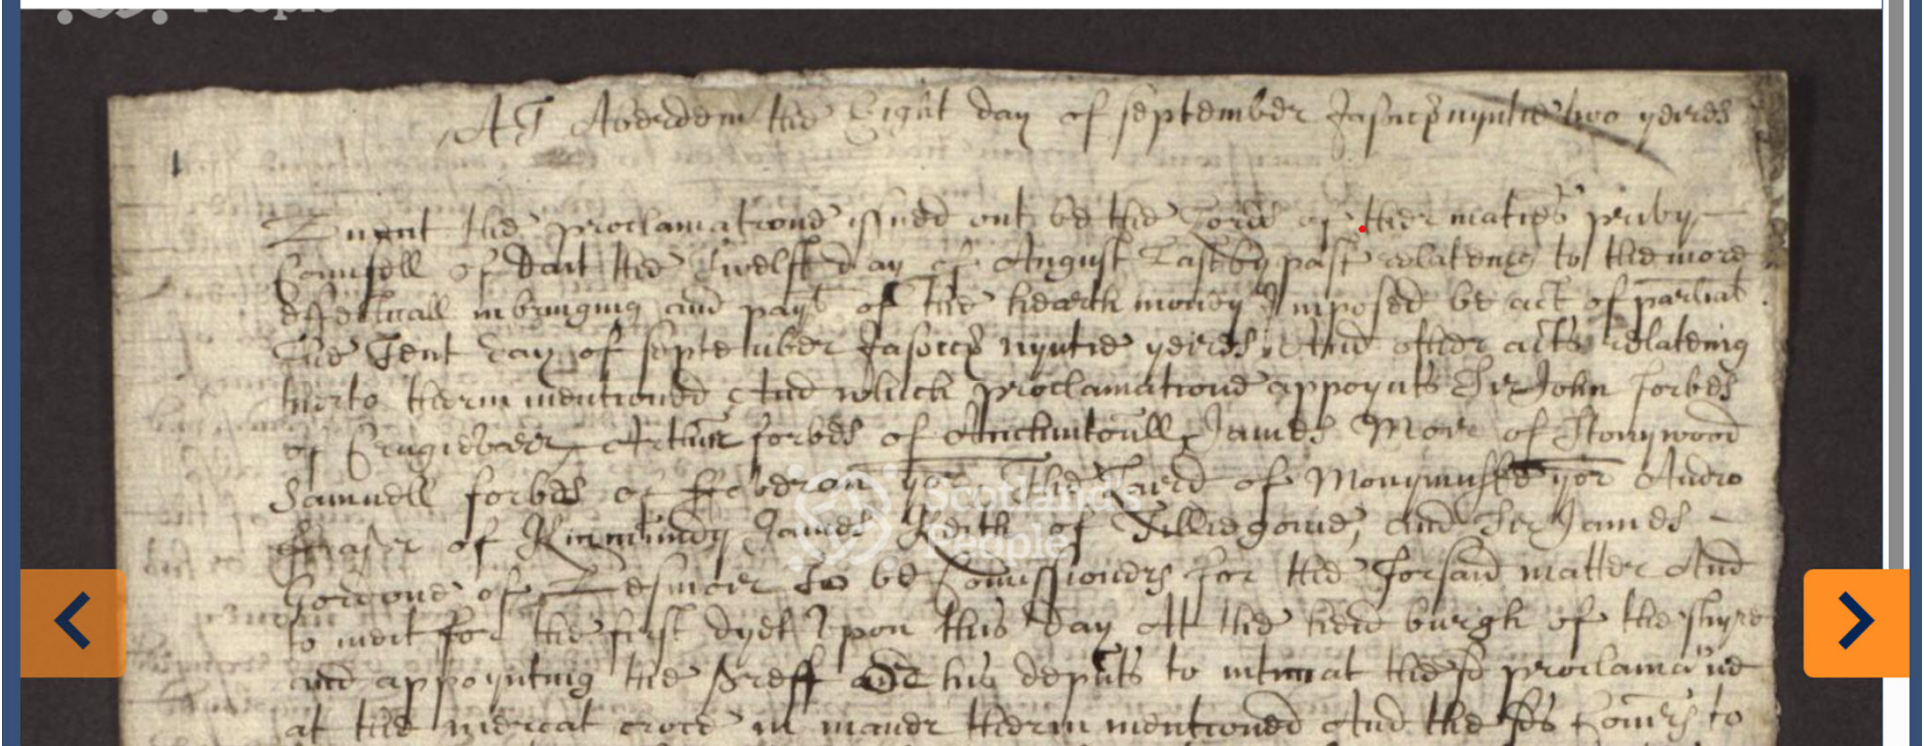 People
At Aberdein the Eight day of september Jajvic nyntie two yeires
1
Anent the proclamatione issued out be the Lords of ther maties privy
Counsell of dait the Twelft day of August Last by past relateing to the more
effectuall inbringing and payt of the hearth money Imposed be act of parliat
The Tent day of september Jajvic nyntie yeires And other acts relateing
therto therin mentioned And which proclamatione appoynts Sir John forbes
of Craigievarr Arthur forbes of Auchintoull James Moir of Stonywood
Samuell forbes of foveran yor The Laird of Monymuske yor Andro
fraser of Kinmundy James Keith of Tilliegonie, and Sir James
Gordone of Lesmoir To be Comissioners for the forsaid matter And
to meit for the first dyet Upon this day At the head burgh of the shyre
and appoynting the shreff and his deputs to intimat the sd proclamatione
at the mercat croce in maner therin mentioned And the sds Comrs to
Scotland's
People